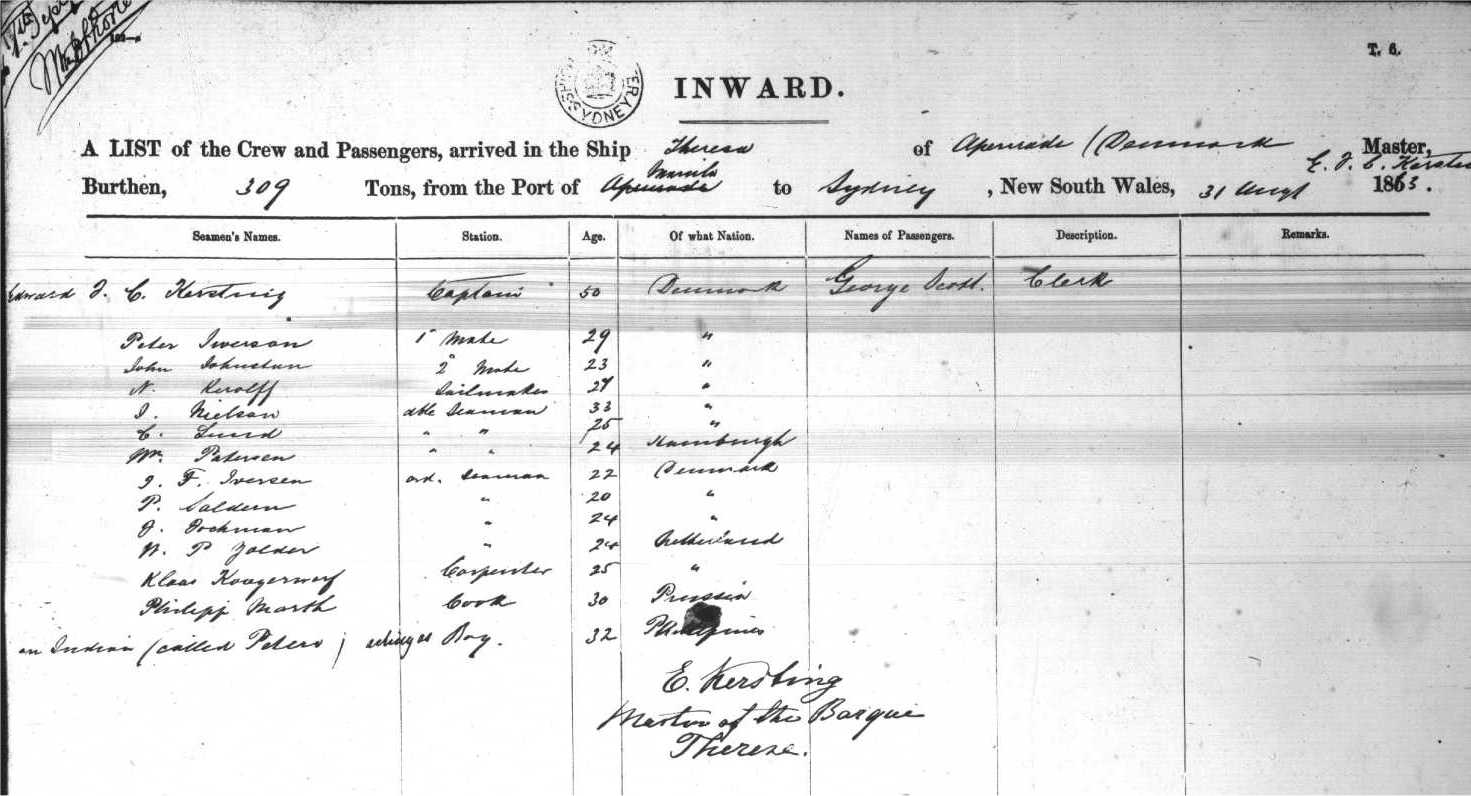 T. 6.
SYDNEY
INWARD.
A LIST of the Crew and Passengers, arrived in the Ship Theresa of Apenrade / Denmark Master, E. J. C. Kersting
Burthen, 309 Tons, from the Port of Apenrade Manila to Sydney, New South Wales, 31 Augt 1863.
Seamen's Names. Station. Age. Of what Nation. Names of Passengers. Description. Remarks.
Edward J. C. Kersting Captain 50 Denmark George Scott. Clerk
Peter Iverson 1st Mate 29 "
John Johnstun 2d Mate 23 "
N. Kerolff Sailmaker 27 "
J. Nielson able Seaman 33 "
C. Lund " " 25 "
Wm. Petersen " " 24 Hamburgh
J. F. Iversen ord. Seaman 22 Denmark
P. Saldern " 20 "
J. Jochman " 24 "
N. P Zolder " 24 Netherland
Klaas Koogerwerf Carpenter 25 "
Philipp Marth Cook 30 Prussia
an Indian (called Petero) acting as Boy. 32 Philippines
E. Kersting
Master of the Barque
Therese.